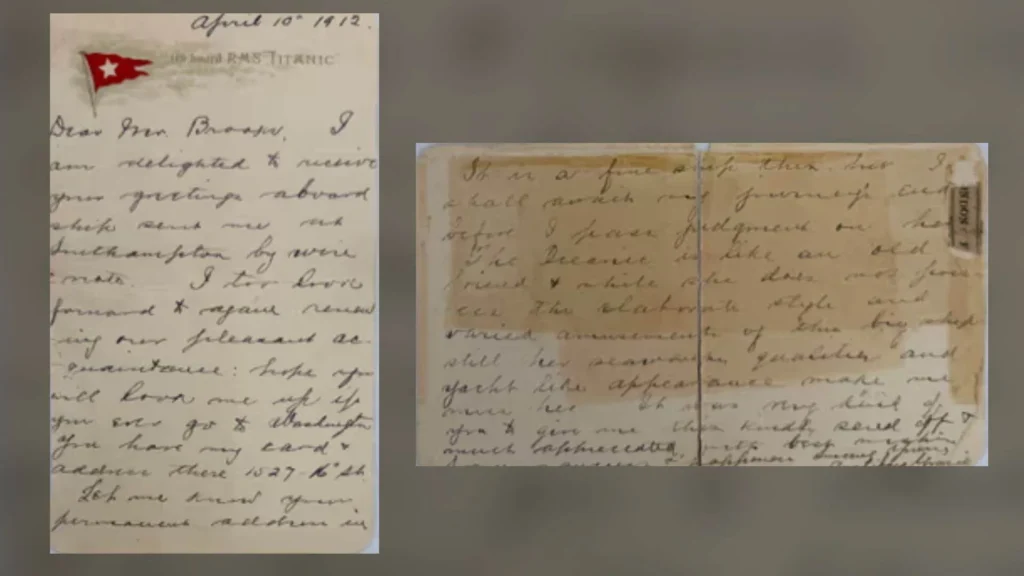 April 10th 1912.
On board R.M.S. TITANIC
Dear Mr. Brooks, I
am delighted to receive
your greetings aboard
ship sent me at
Southampton by wire
& note. I too look
forward to again renew
-ing our pleasant ac-
quaintance: hope you
will look me up if
you ever go to Washington
You have my card &
address there 1527-16" St.
Let me know your
permanent address in
It is a fine ship this but I
shall await my journey's end
before I pass judgment on her
The Oceanic is like an old
friend & while she does not poss-
ess the elaborate style and
varied amusements of this big ship
still her seaworthy qualities and
yacht like appearance make me
miss her. It was very kind of
you to give me this kindly send off &
much appreciated with best